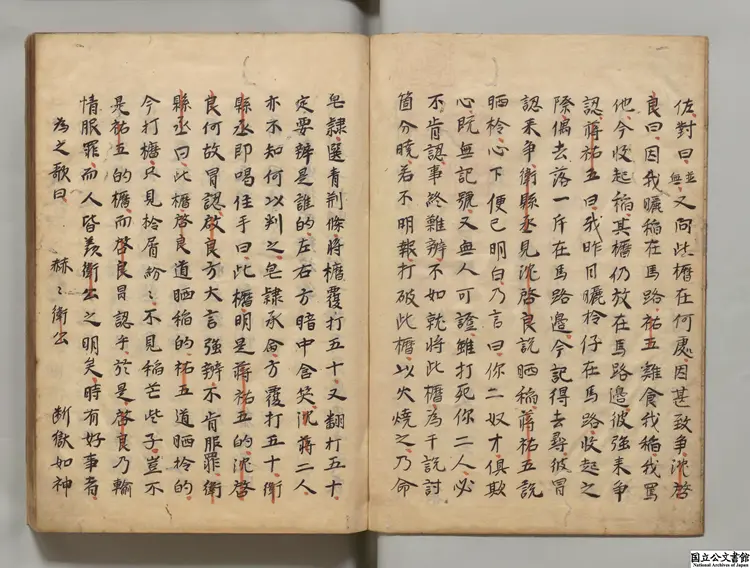 佐對曰並無又問此㯭在何處因甚致爭沈啓
良曰因我曬稻在馬路祐五雞食我稻我罵
他今收起稻其㯭仍放在馬路邊彼強來爭
認蔣祐五曰我昨日曬柃仔在馬路收起之
際偶去落一斤在馬路邊今記得去尋彼冒
認來爭衛縣丞見沈啓良說晒稻蔣祐五說
晒柃心下便已明白乃言曰你二奴才俱欺
心既無記號又無人可證雖打死你二人必
不肯認事終難辨不如就將此㯭為干說討
箇分曉若不明報打破此㯭以火燒之乃命
皂隸選青荆條將㯭覆打五十又翻打五十
定要辨是誰的左右方暗中含笑沈蔣二人
亦不知何以判之皂隸承命方覆打五十衛
縣丞即喝住手曰此㯭明是蔣祐五的沈啓
良何故冒認啓良方大言強辨不肯服罪衛
縣丞曰此㯭啓良道晒稻的祐五道晒柃的
今打㯭只見柃屑紛〻不見稻芒些子豈不
是祐五的㯭而啓良冒認乎於是啓良乃輸
情服罪而人皆羨衛公之明矣時有好事者
為之歌曰 赫〻衛公 断獄如神
国立公文書館
National Archives of Japan